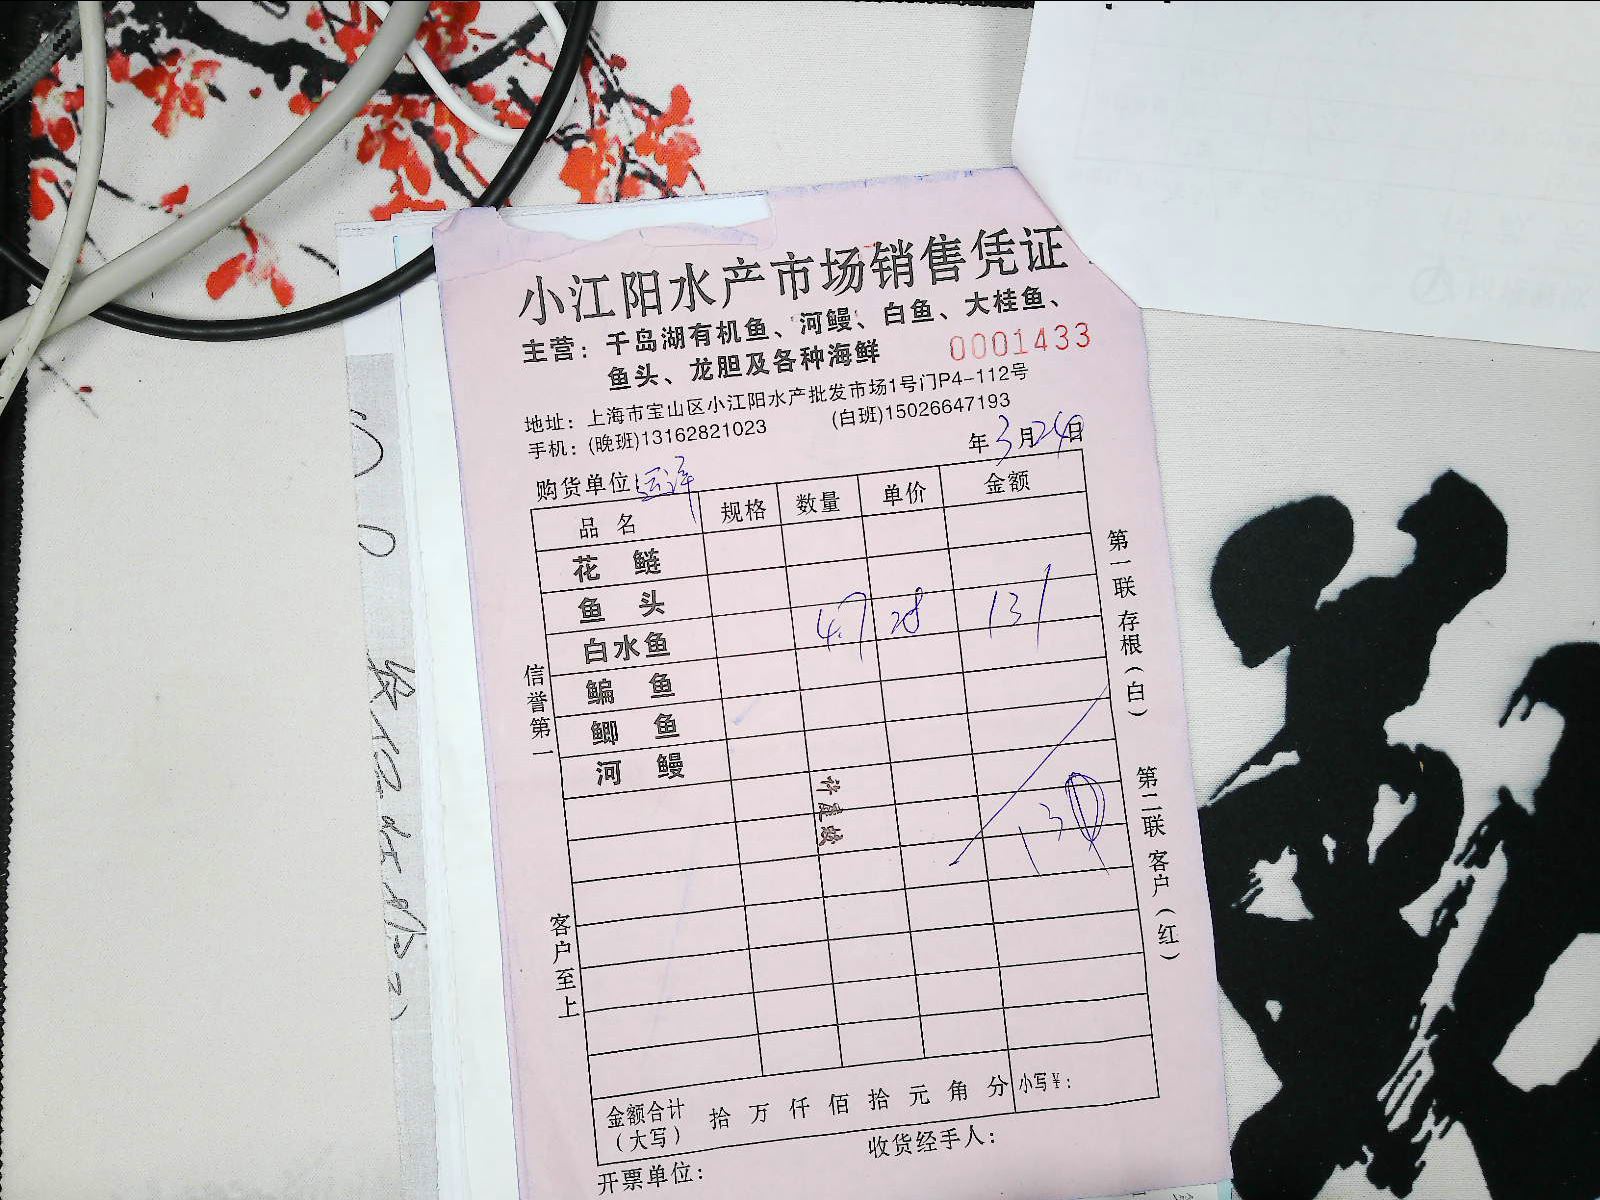 小江阳水产市场销售凭证
主营：千岛湖有机鱼、河鳗、白鱼、大桂鱼、
鱼头、龙胆及各种海鲜
0001433
地址：上海市宝山区小江阳水产批发市场1号门P4-112号
手机：(晚班)13162821023 (白班)15026647193
年3月24日
购货单位：
品名 规格 数量 单价 金额
花鲢
鱼头
白水鱼 4.7 28 131
鳊鱼
鲫鱼
河鳗
许建放
130
信誉第一
客户至上
第一联 存根（白）
第二联 客户（红）
金额合计（大写） 拾 万 仟 佰 拾 元 角 分 小写¥：
收货经手人：
开票单位：